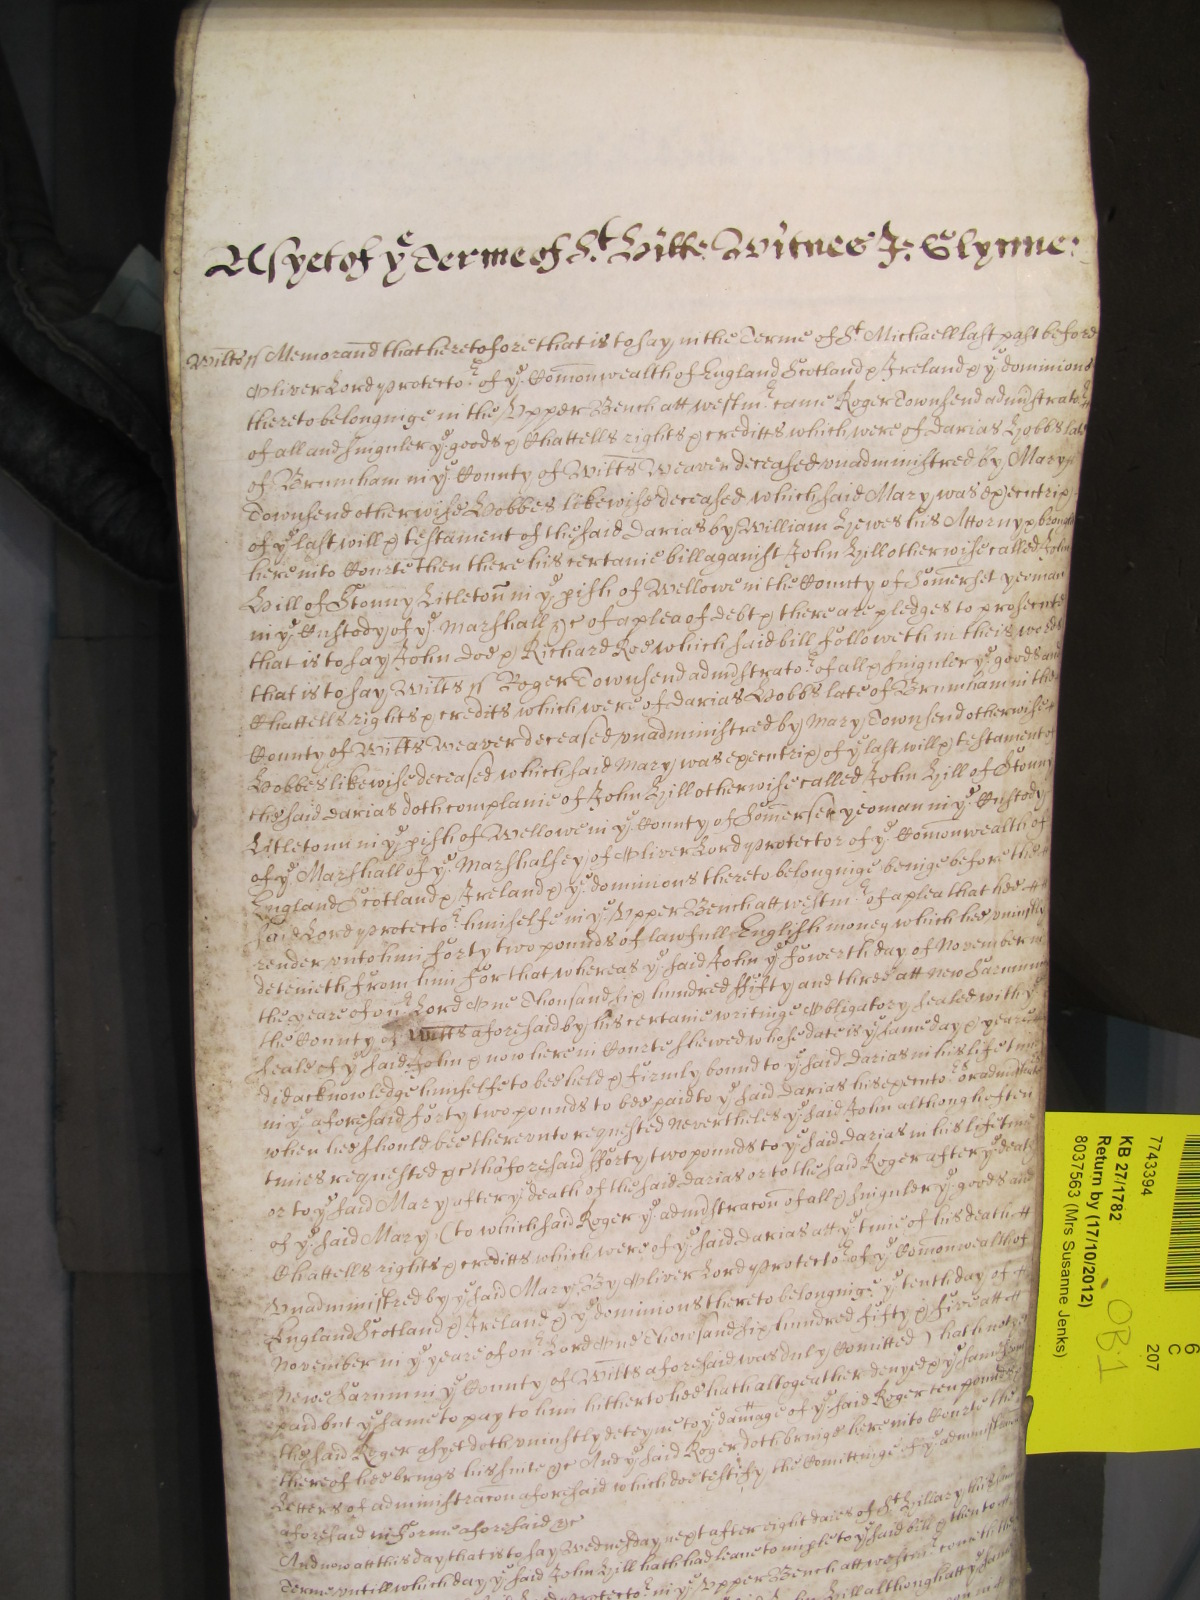 As yet of ye Terme of St. Hill: Witnes J: Glynne:
Wilts ss Memorand that heretofore that is to say in the Terme of St Michaell last past before
Oliver Lord Protector of ye Comonwealth of England Scotland & Ireland & ye dominions
thereto belonginge in the Upper Bench att Westmr came Roger Townsend administrator
of all and singuler ye goods & Chattells rights & creditts which were of Darias Hobbs late
of Brumham in ye County of Wilts Weaver deceased unadministred by Mary
Townsend otherwise Hobbes likewise deceased which said Mary was executrix
of ye last will & testament of the said Darias by William Hewes his Attorny & brought
here into Courte then there his certaine bill against John Hill otherwise called John
Hill of Stonny Litleton in ye pish of Wellowe in the County of Somerset yeoman
in ye Custody of ye Marshall &c of a plea of debt & there are pledges to prosecute
that is to say John Doe & Richard Roe which said bill followeth in theis words
that is to say Wilts ss Roger Townsend administrator of all & singuler ye goods and
Chattells rights & credits which were of Darias Hobbs late of Brumham in the
County of Wilts Weaver deceased unadministred by Mary Townsend otherwise
Hobbes likewise deceased which said Mary was executrix of ye last will & testament of
the said Darias doth complaine of John Hill otherwise called John Hill of Stonny
Litletonn in ye pish of Wellowe in ye County of Somerset yeoman in ye Custody
of ye Marshall of ye Marshalsey of Oliver Lord Protector of ye Comonwealth of
England Scotland & Ireland & ye dominions thereto belonginge beinge before the
said Lord Protector himselfe in ye Upper Bench att Westmr of a plea that hee
render unto him forty two pounds of lawfull English money which hee uniustly
deteineth from him For that whereas ye said John ye fowerth day of November in
the yeare of our Lord One Thousand six hundred fifty and three att New Sarum in
the County of Wilts aforesaid by his certaine writinge Obligatory sealed with ye
seale of ye said John & now here in Courte shewed whose date is ye same day & yeare
did acknowledge himselfe to bee held & firmly bound to ye said Darias in his life time
in ye aforesaid forty two pounds to bee paid to ye said Darias his executors or administrators
when hee should bee thereunto requested Nevertheles ye said John although often
times requested &c the aforesaid fforty two pounds to ye said Darias in his life time
or to ye said Mary after ye death of the said Darias or to the said Roger after ye death
of ye said Mary (to which said Roger ye administracon of all & singuler ye goods and
Chattells rights & creditts which were of ye said Darias att ye time of his death
Unadministred by ye said Mary By Oliver Lord Protector of ye Comonwealth of
England Scotland & Ireland & ye dominions thereto belonginge ye tenth day of
November in ye yeare of our Lord One Thowsand six hundred fifty & five att
Newe Sarum in ye County of Wilts aforesaid was duly Comitted) hath not
paid but ye same to pay to him hitherto hee hath altogeather denyed & ye same
the said Roger as yet doth uniustly deteyne to ye damage of ye said Roger ten pounds
thereof hee brings his suite &c And ye said Roger doth bringe here into Courte the
Letters of administracon aforesaid which doe testify the Comittinge of ye administracon
aforesaid in Forme aforesaid &c
And now att this day that is to say Wednesday next after eight daies of St Hillary this
Terme untill which day ye said John Hill hath had leave to imple to ye said bill & then to
Protector in ye Upper Bench att Westmr cometh the
John Hill although att ye same
7743394
KB 27/1782
Return by (17/10/2012)
8037563 (Mrs Susanne Jenks)
6
C
207
OB·1